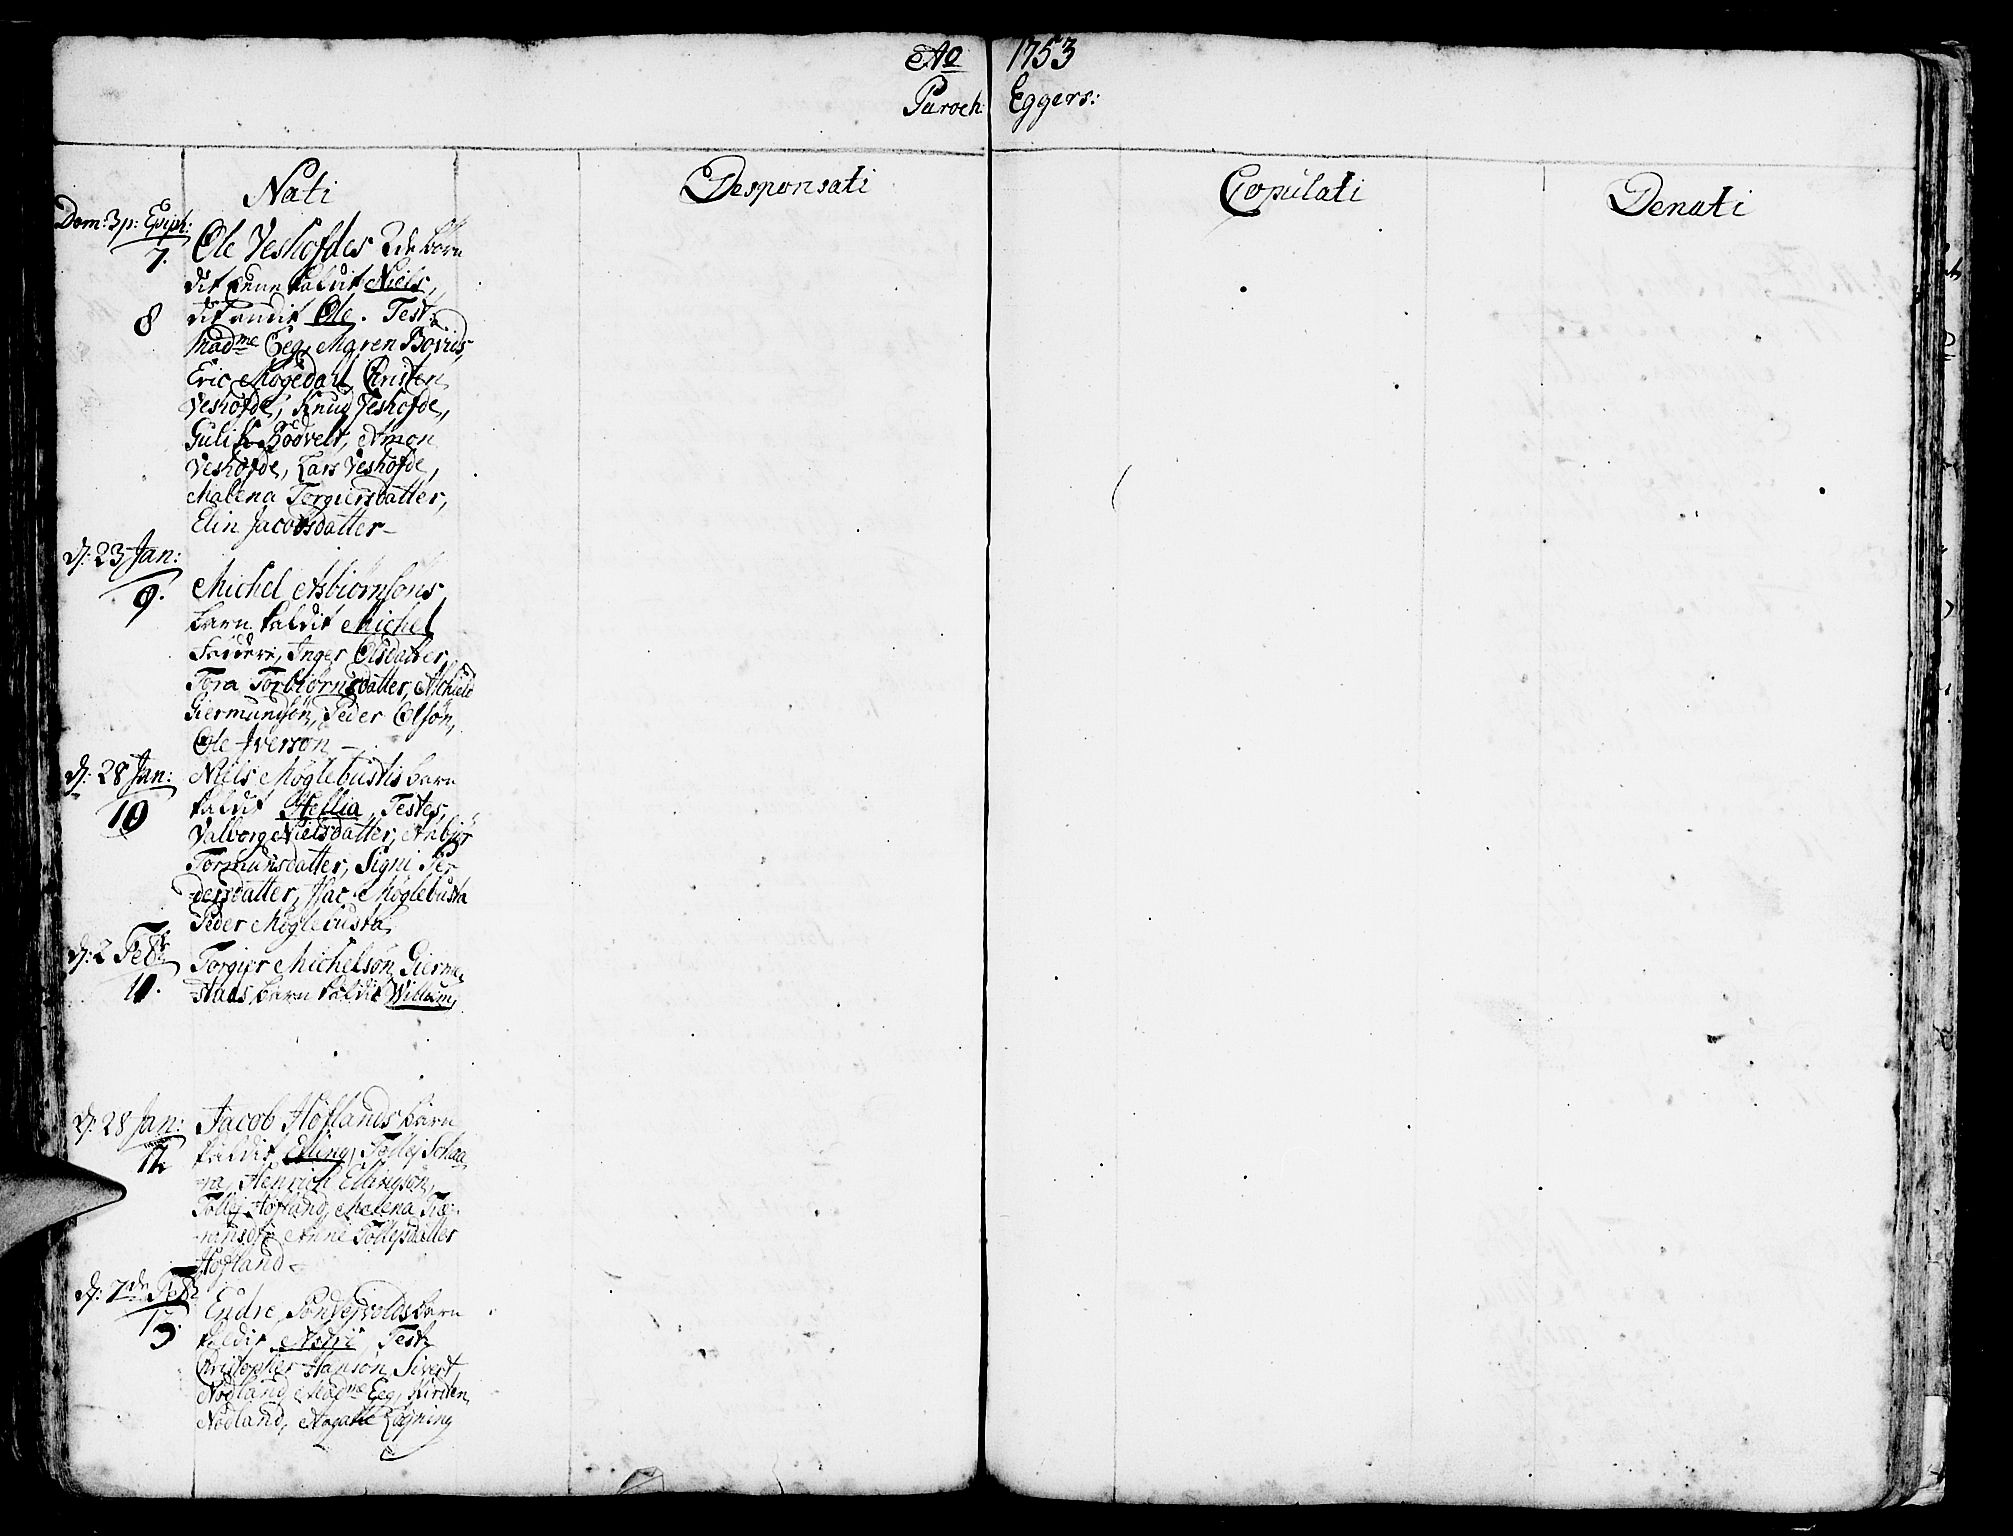 Ao 1753
Paroch: Eggers:
Nati
Desponsati
Copulati
Denati
Dom: 3 p: Epiph:
7. Ole Veshofdes 2de børn
dit eene kaldit Niels,
8 dit andit Ole. Test:
Madme Eeg, Maren
Eric Møgedahl, Christen
Veshofde, Knud Veshofde,
Amon
Veshofde, Lars Veshofde,
Malena Torgiersdatter,
Elin Jacobsdatter
d: 23 Jan:
9. Michel Asbiornsons
barn kaldit Michel
Faddere, Inger Olsdatter,
Tora Torbiornsdatter,
Giermundsön, Peder Olsön,
Ole Iverson
d: 28 Jan: Niels Møglebustis barn
10 kaldit Hellia, Testes,
Valborg Nielsdatter,
Tormunsdatter, Signi Pe-
dersdatter, Møglebusta
Peder Møglebusta
d: 2 Febr Torgier Michelsön Gierme-
11. -stads barn kaldit Willum,
d: 28 Jan: Jacob Höflands barn
12 kaldit Elling, Tollej Schaa-
-ra, Henrich Ellingsön,
Tollej Höfland, Melena
Anne Tollejsdatter
Höfland
d: 7de Febr
13. Endre barn
kaldit Test:
Christopher Hansön, Sivert
Nodland, Madme Eeg, Kirsten
Nodland, Agathe